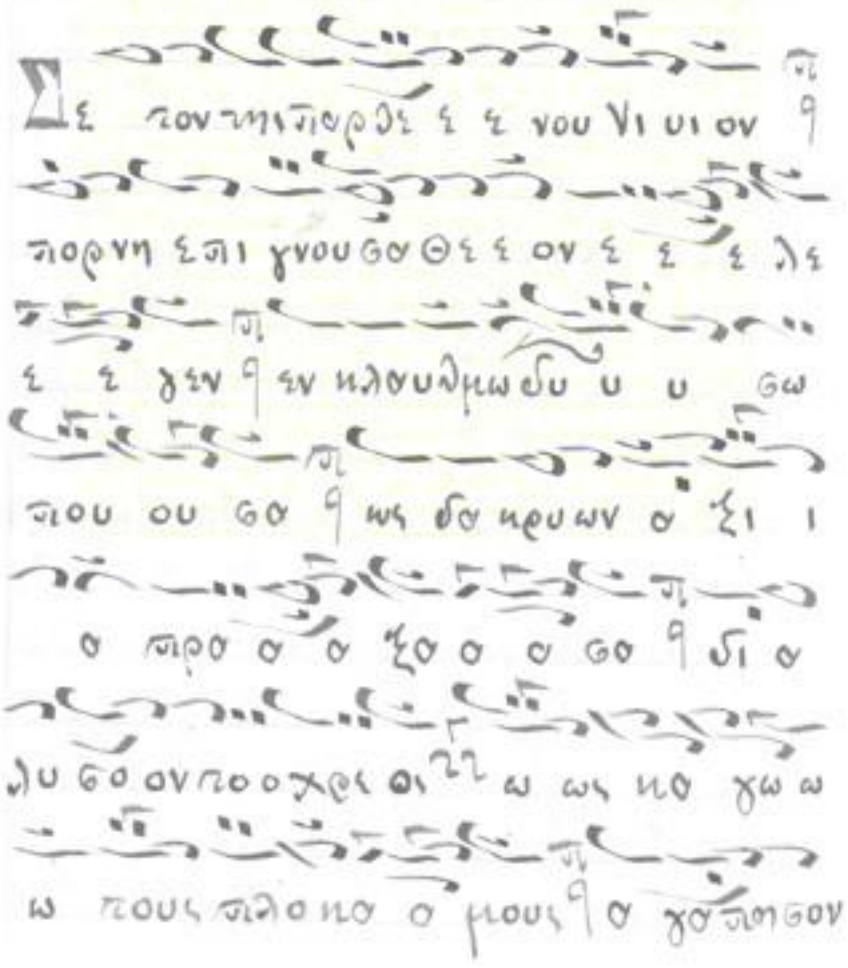 Σε τον της παρθε ε ε νου νι υι ον
πορνη επι γνουσα Θε ε ον ε ε ε λε
ε ε γεν εν κλαυθμω δυ υ υ σω
που ου σα ως δα κρυων α ξι ι
α πρα α α ξα α α σα δι α
λυ σο ον το ο χρε ος ω ως κα γω ω
ω τους πλο κα α μους α γα πησον